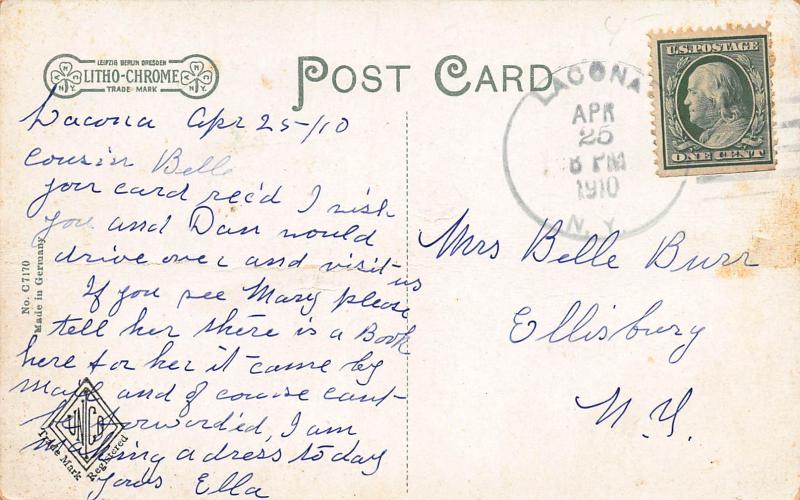 LEIPZIG BERLIN DRESDEN
LITHO-CHROME
TRADE MARK
POST CARD
U.S. POSTAGE
ONE CENT
LACONA
APR
25
6 PM
1910
N.Y.
Lacona Apr 25-/10
Cousin Belle
your card rec'd I wish
you and Dan would
drive over and visit us
If you see Mary please
tell her there is a Book
here for her it came by
mail and of course cant
be forwarded, I am
making a dress to day
yours Ella
Mrs Belle Burr
Ellisburg
N.Y.
No. C7170
Made in Germany
Trade Mark
Registered